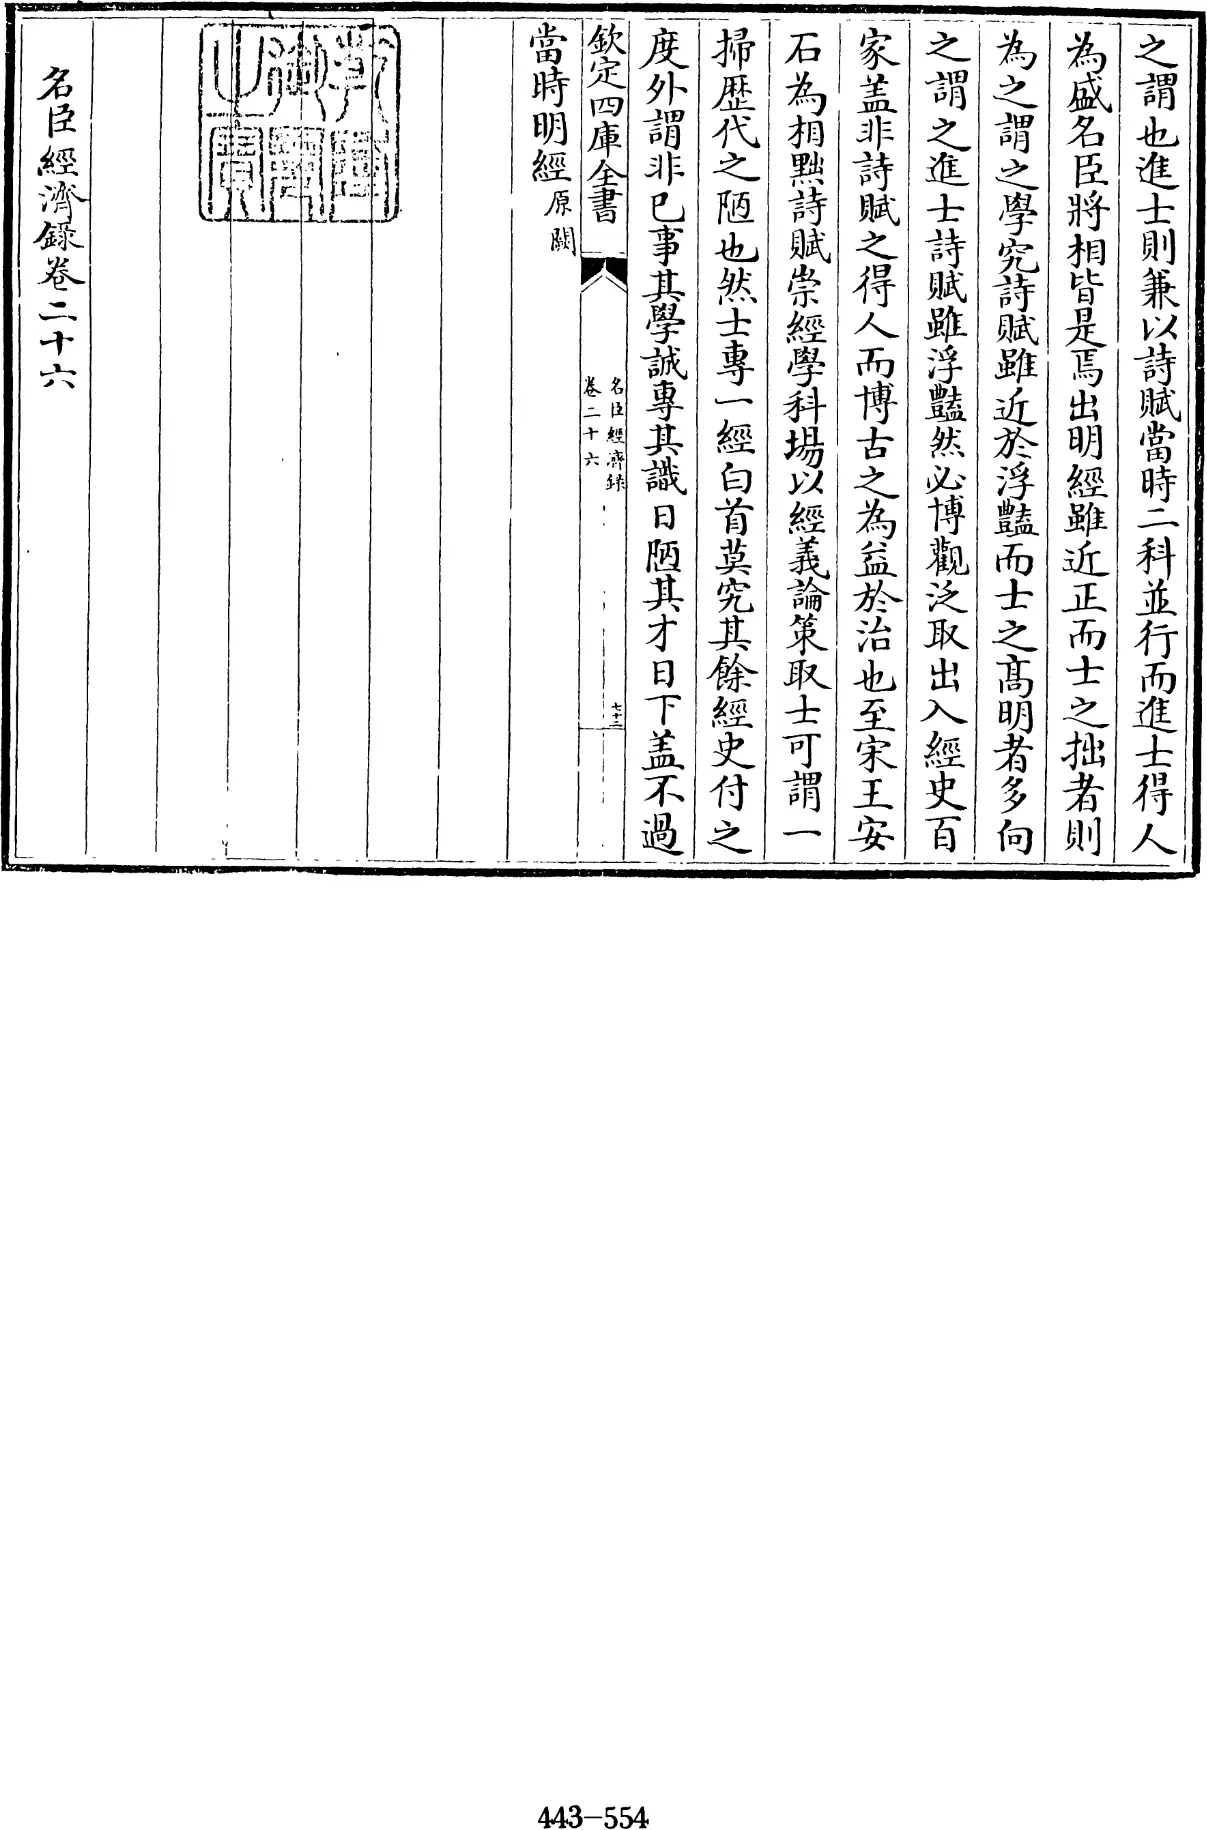 之謂也進士則兼以詩賦當時二科並行而進士得人
為盛名臣將相皆是焉出明經雖近正而士之拙者則
為之謂之學究詩賦雖近於浮豔而士之髙明者多向
之謂之進士詩賦雖浮豔然必博觀泛取出入經史百
家盖非詩賦之得人而博古之為益於治也至宋王安
石為相黜詩賦崇經學科場以經義論策取士可謂一
掃歴代之陋也然士專一經白首莫究其餘經史付之
度外謂非已事其學誠專其識日陋其才日下盖不過
欽定四庫全書
名臣經濟録
卷二十六
七十二
當時明經原闕
名臣經濟録卷二十六
443–554